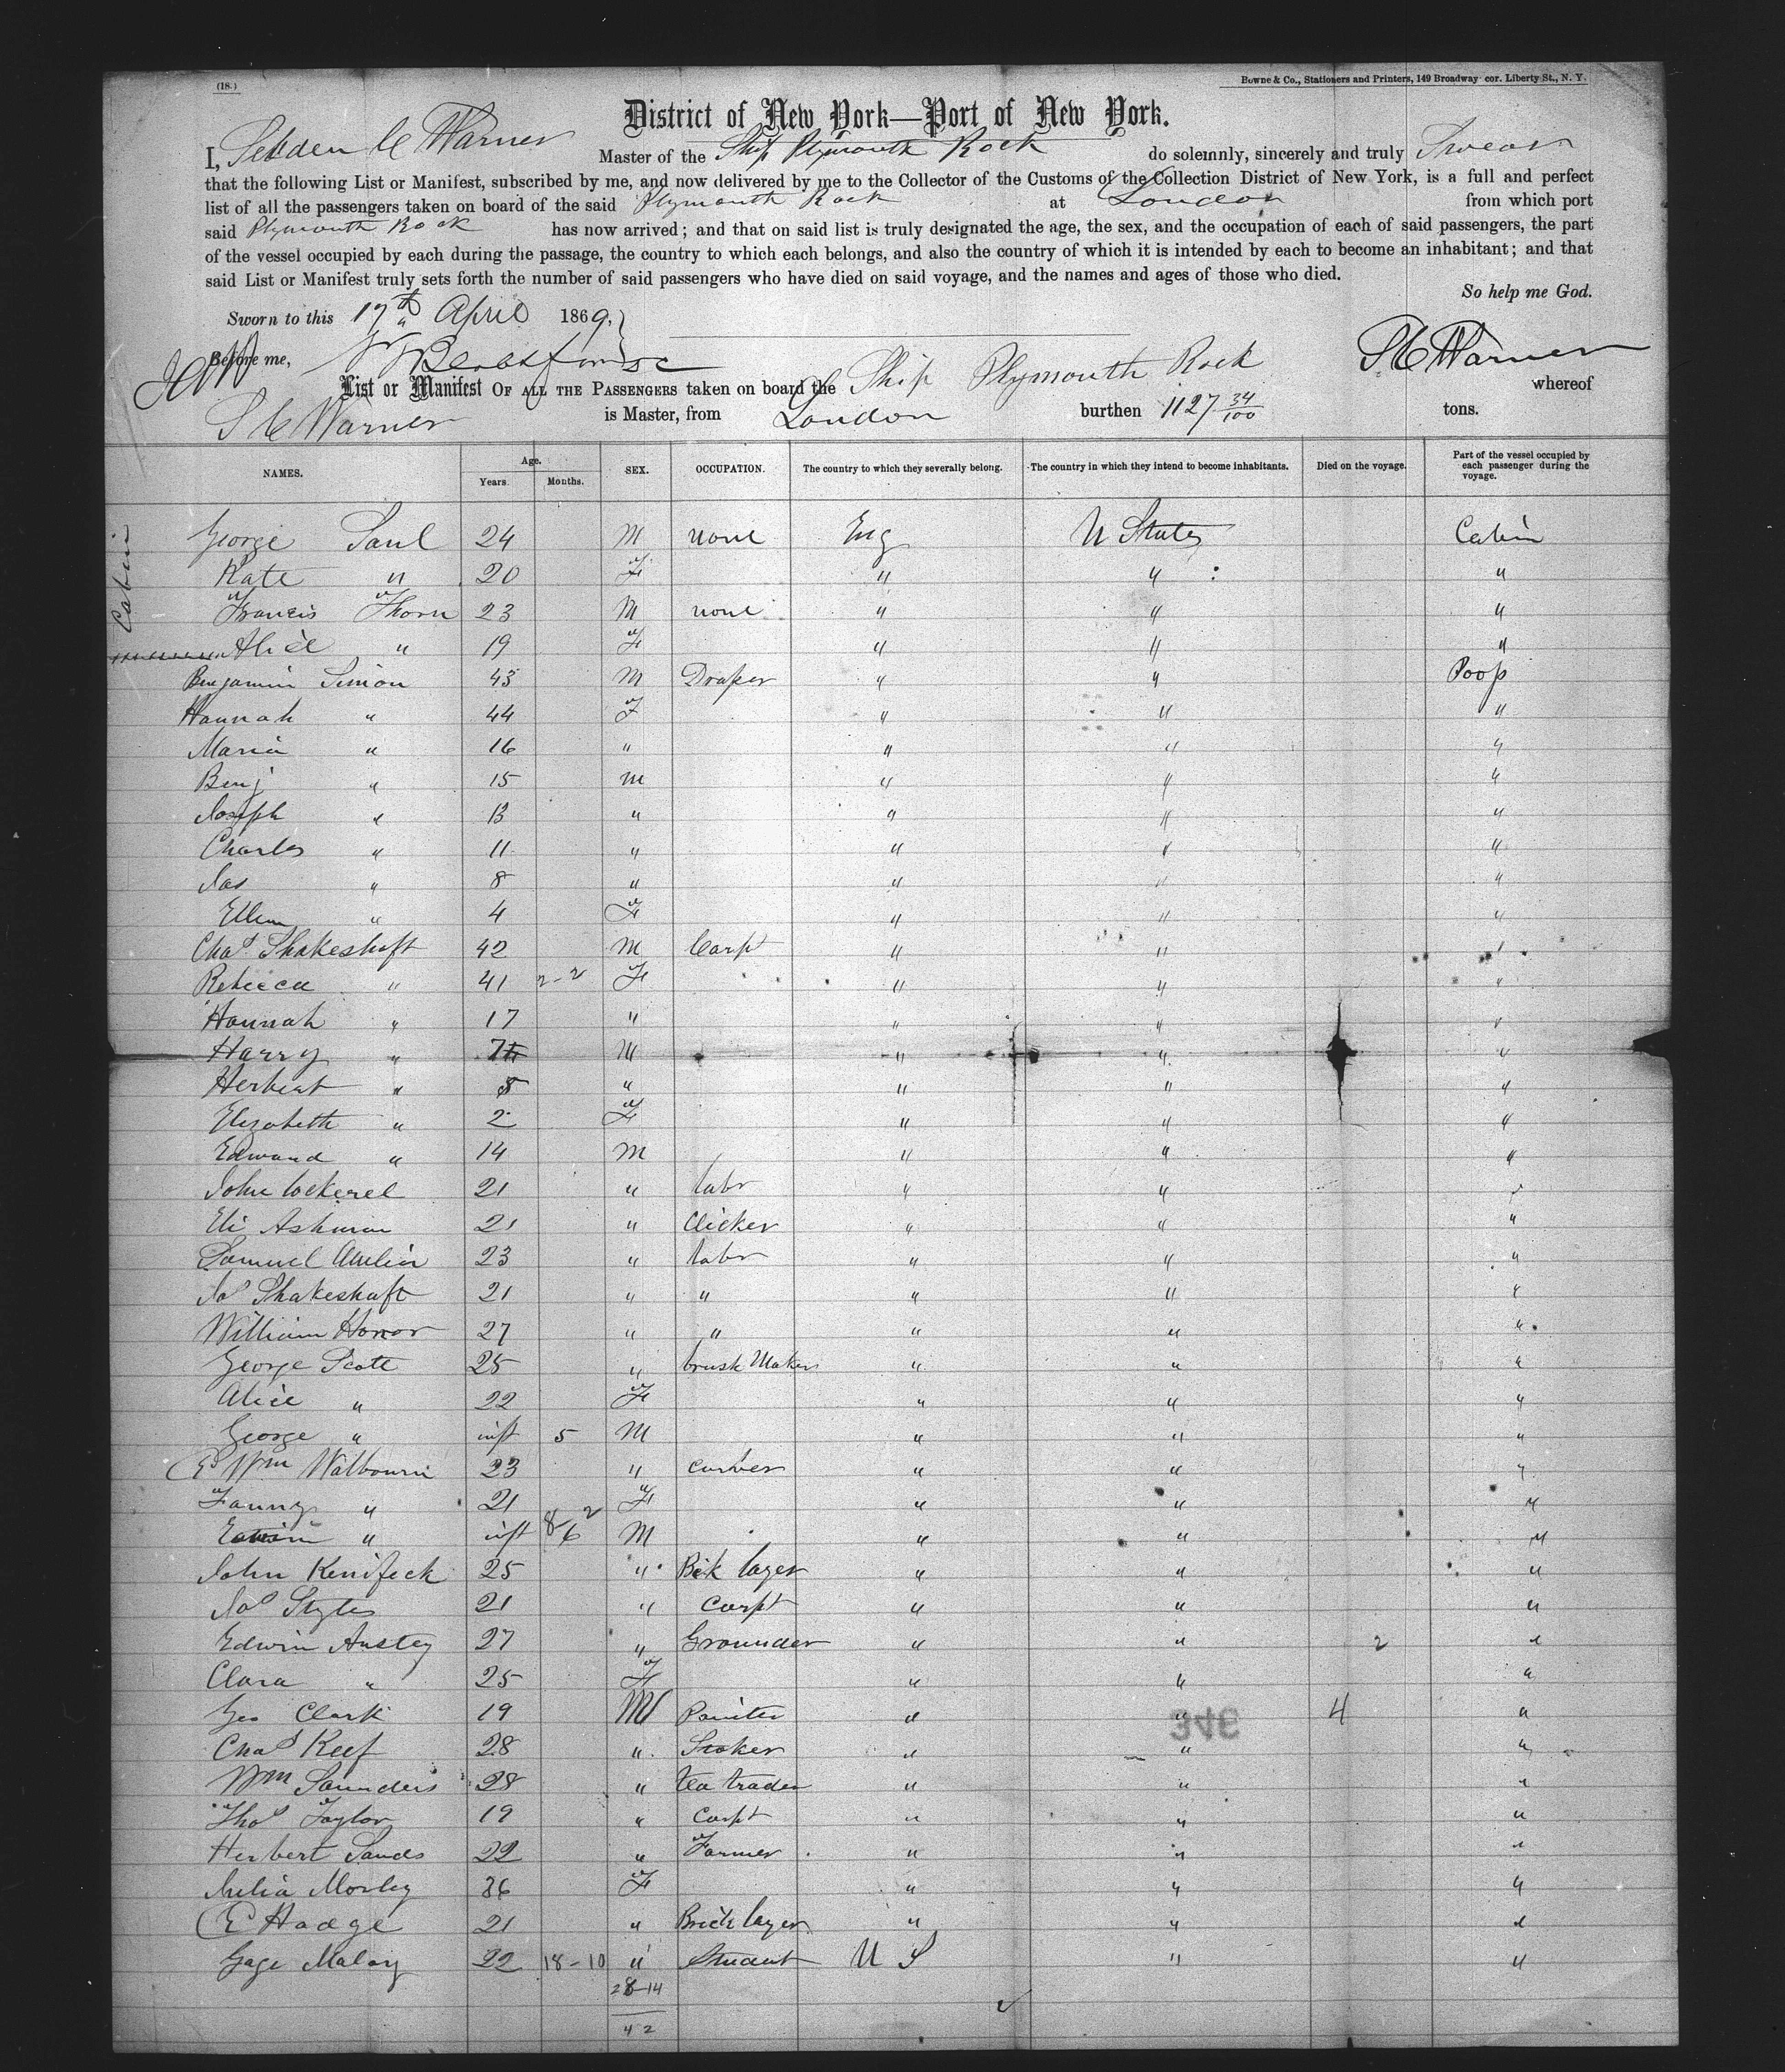 (18.)
Bowne & Co., Stationers and Printers, 149 Broadway cor. Liberty St., N. Y.
District of New York—Port of New York.
I, Selden C Warner Master of the Ship Plymouth Rock do solemnly, sincerely and truly Swear
that the following List or Manifest, subscribed by me, and now delivered by me to the Collector of the Customs of the Collection District of New York, is a full and perfect
list of all the passengers taken on board of the said Plymouth Rock at London from which port
said Plymouth Rock has now arrived; and that on said list is truly designated the age, the sex, and the occupation of each of said passengers, the part
of the vessel occupied by each during the passage, the country to which each belongs, and also the country of which it is intended by each to become an inhabitant; and that
said List or Manifest truly sets forth the number of said passengers who have died on said voyage, and the names and ages of those who died.
So help me God.
Sworn to this 17th April 1869,
Before me, S C Warner
List or Manifest OF ALL THE PASSENGERS taken on board the Ship Plymouth Rock whereof
S C Warner is Master, from London burthen 1127 34/100 tons.
NAMES. Age. Years. Months. SEX. OCCUPATION. The country to which they severally belong. The country in which they intend to become inhabitants. Died on the voyage. Part of the vessel occupied by each passenger during the voyage.
Cabin
George Saul 24 M none Eng U States Cabin
Kate " 20 F " " "
Francis Thorn 23 M none " " "
Alice " 19 F " " "
Benjamin Simon 43 M Draper " " Poop
Hannah " 44 F " " "
Maria " 16 " " " "
Benj " 15 M " " "
Joseph " 13 " " " "
Charles " 11 " " " "
Jas " 8 " " " "
Ellen " 4 F " " "
Chas Shakeshaft 42 M Carpt " " "
Rebecca " 41 2-2 F " " "
Hannah " 17 " " " "
Harry " 7 M " " "
Herbert " 5 " " " "
Elizabeth " 2 F " " "
Edward " 14 M " " "
John Cockerel 21 " labr " " "
Eli Ashman 21 " Clicker " " "
Samuel 23 " labr " " "
Jas Shakeshaft 21 " " " " "
William Honor 27 " " " " "
George Scott 25 " brush Maker " " "
Alice " 22 F " " "
George " inft 5 M " " "
Wm Walbourn 23 " carver " " "
Fanny " 21 F " " "
Edwin " inft 8 6 2 M " " "
John Kenifeck 25 " Bck layer " " "
Jas Styles 21 " Carpt " " "
Edwin Anstey 27 " Grounder " " 2 "
Clara " 25 F " " "
Geo Clark 19 M Painter " " 4 "
346
Chas Reef 28 " Stoker " " "
Wm Saunders 28 " tea trader " " "
Thos Taylor 19 " Carpt " " "
Herbert Sands 22 " Farmer " " "
Julia Morley 36 F " " "
E Hodge 21 " Brick layer " " "
Gage Maloy 22 18-10 " Student U S " "
28-14
42